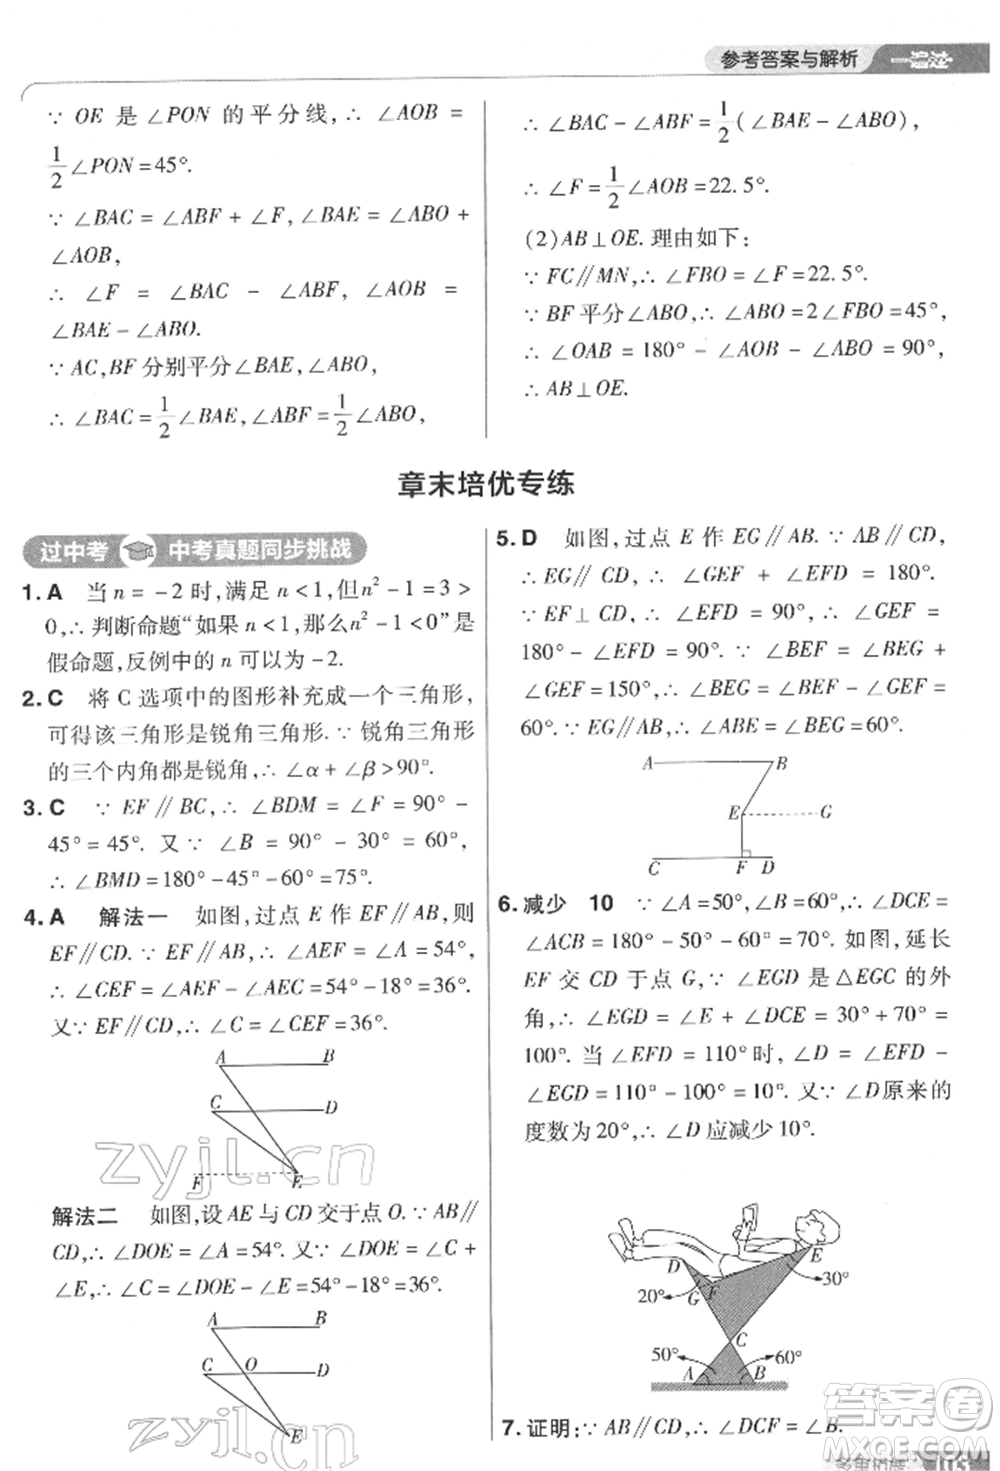 参考答案与解析 一遍过
∵ OE 是 ∠PON 的平分线, ∴ ∠AOB =
1/2∠PON = 45°.
∵ ∠BAC = ∠ABF + ∠F, ∠BAE = ∠ABO +
∠AOB,
∴ ∠F = ∠BAC − ∠ABF, ∠AOB =
∠BAE − ∠ABO.
∵ AC, BF 分别平分 ∠BAE, ∠ABO,
∴ ∠BAC = 1/2∠BAE, ∠ABF = 1/2∠ABO,
∴ ∠BAC − ∠ABF = 1/2(∠BAE − ∠ABO),
∴ ∠F = 1/2∠AOB = 22.5°.
(2)AB⊥OE. 理由如下:
∵ FC∥MN, ∴ ∠FBO = ∠F = 22.5°.
∵ BF 平分∠ABO, ∴ ∠ABO = 2∠FBO = 45°,
∴ ∠OAB = 180° − ∠AOB − ∠ABO = 90°,
∴ AB⊥OE.
章末培优专练
过中考 中考真题同步挑战
1. A 当 n = −2 时, 满足 n < 1, 但 n² − 1 = 3 >
0, ∴ 判断命题“如果 n < 1, 那么 n² − 1 < 0”是
假命题, 反例中的 n 可以为 −2.
2. C 将 C 选项中的图形补充成一个三角形,
可得该三角形是锐角三角形. ∵ 锐角三角形
的三个内角都是锐角, ∴ ∠α + ∠β > 90°.
3. C ∵ EF∥BC, ∴ ∠BDM = ∠F = 90° −
45° = 45°. 又∵ ∠B = 90° − 30° = 60°,
∴ ∠BMD = 180° − 45° − 60° = 75°.
4. A 解法一 如图, 过点 E 作 EF∥AB, 则
EF∥CD. ∵ EF∥AB, ∴ ∠AEF = ∠A = 54°,
∴ ∠CEF = ∠AEF − ∠AEC = 54° − 18° = 36°.
又∵ EF∥CD, ∴ ∠C = ∠CEF = 36°.
A B
C D
F E
解法二 如图, 设 AE 与 CD 交于点 O. ∵ AB∥
CD, ∴ ∠DOE = ∠A = 54°. 又∵ ∠DOE =
∠C + ∠E, ∴ ∠C = ∠DOE − ∠E = 54° − 18° = 36°.
A B
C O D
E
5. D 如图, 过点 E 作 EG∥AB. ∵ AB∥CD,
∴ EG∥CD, ∴ ∠GEF + ∠EFD = 180°.
∵ EF⊥CD, ∴ ∠EFD = 90°, ∴ ∠GEF =
180° − ∠EFD = 90°. ∵ ∠BEF = ∠BEG +
∠GEF = 150°, ∴ ∠BEG = ∠BEF − ∠GEF =
60°. ∵ EG∥AB, ∴ ∠ABE = ∠BEG = 60°.
A B
E G
C F D
6. 减少 10 ∵ ∠A = 50°, ∠B = 60°, ∴ ∠DCE =
∠ACB = 180° − 50° − 60° = 70°. 如图, 延长
EF 交 CD 于点 G, ∵ ∠EGD 是△EGC 的外
角, ∴ ∠EGD = ∠E + ∠DCE = 30° + 70° =
100°. 当 ∠EFD = 110° 时, ∠D = ∠EFD −
∠EGD = 110° − 100° = 10°. 又∵ ∠D 原来的
度数为 20°, ∴ ∠D 应减少 10°.
D E
20° G F 30°
C
50° 60°
A B
7. 证明: ∵ AB∥CD, ∴ ∠DCF = ∠B.
zyjl.cn
zyjl.cn
答案卷
MXQE.COM
113